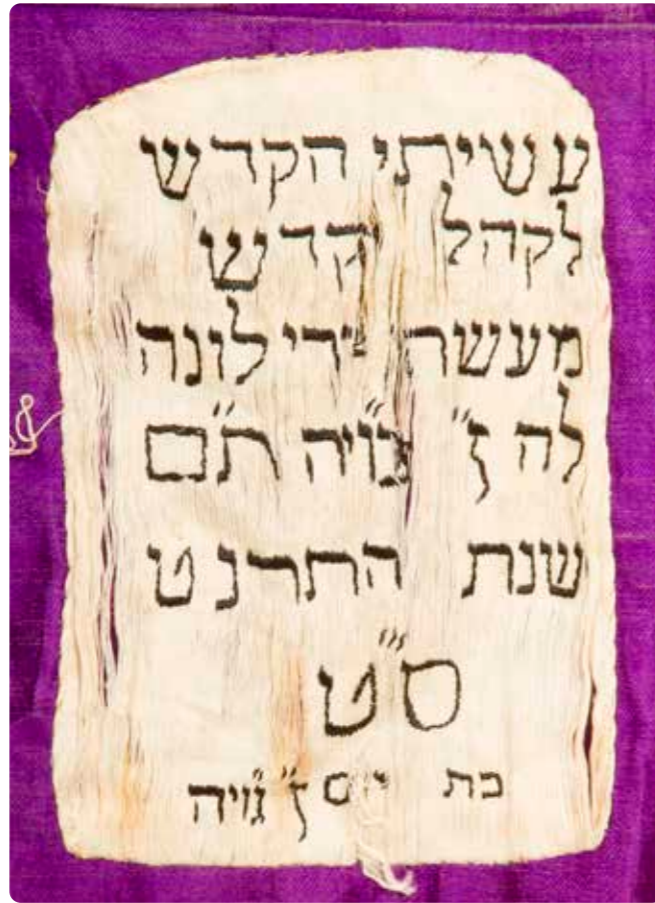 עשיתי הקדש
לקהל קדש
מעשה ידי לונה
לה ז״ גו״יה ת״ם
שנת התרנט
ס״ט
בת ז״ גו״יה